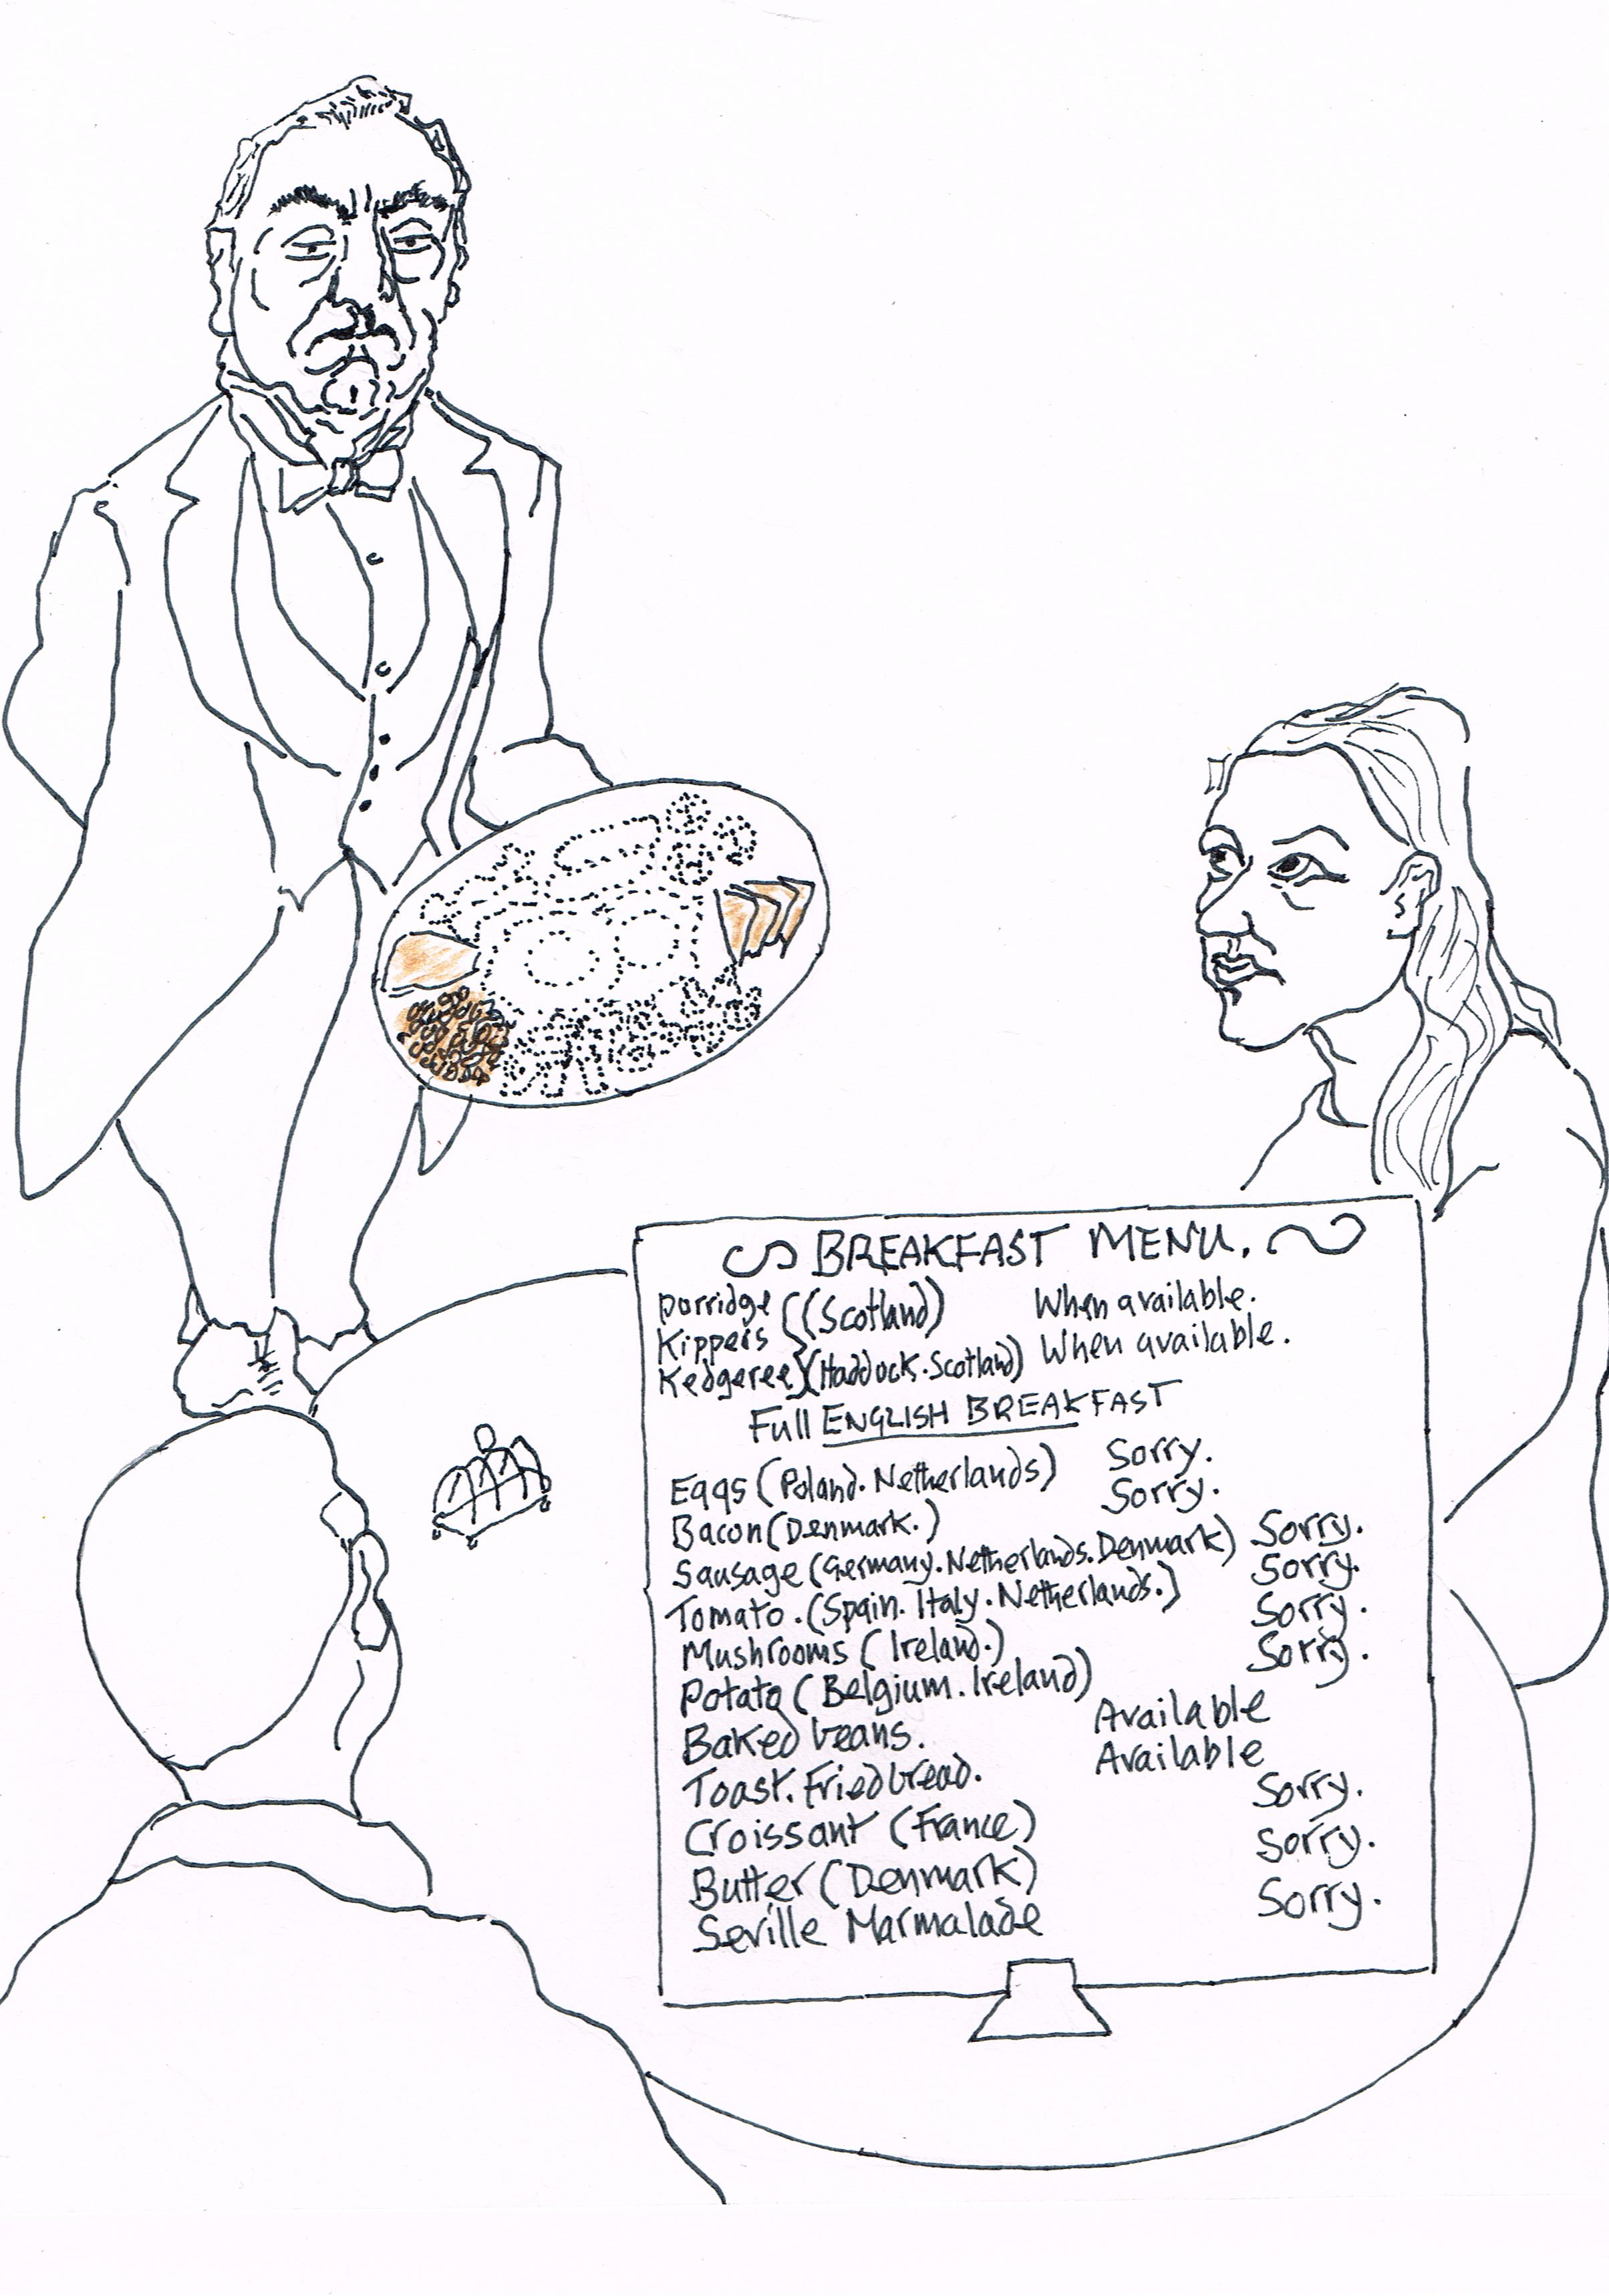 BREAKFAST MENU.
Porridge (Scotland) When available.
Kippers
Kedgeree (Haddock. Scotland) When available.
Full ENGLISH BREAKFAST
Eggs (Poland. Netherlands) Sorry.
Bacon (Denmark.) Sorry.
Sausage (Germany. Netherlands. Denmark) Sorry.
Tomato. (Spain. Italy. Netherlands.) Sorry.
Mushrooms (Ireland.) Sorry.
Potato (Belgium. Ireland) Sorry.
Baked beans. Available
Toast. Fried bread. Available
Croissant (France) Sorry.
Butter (Denmark) Sorry.
Seville Marmalade Sorry.